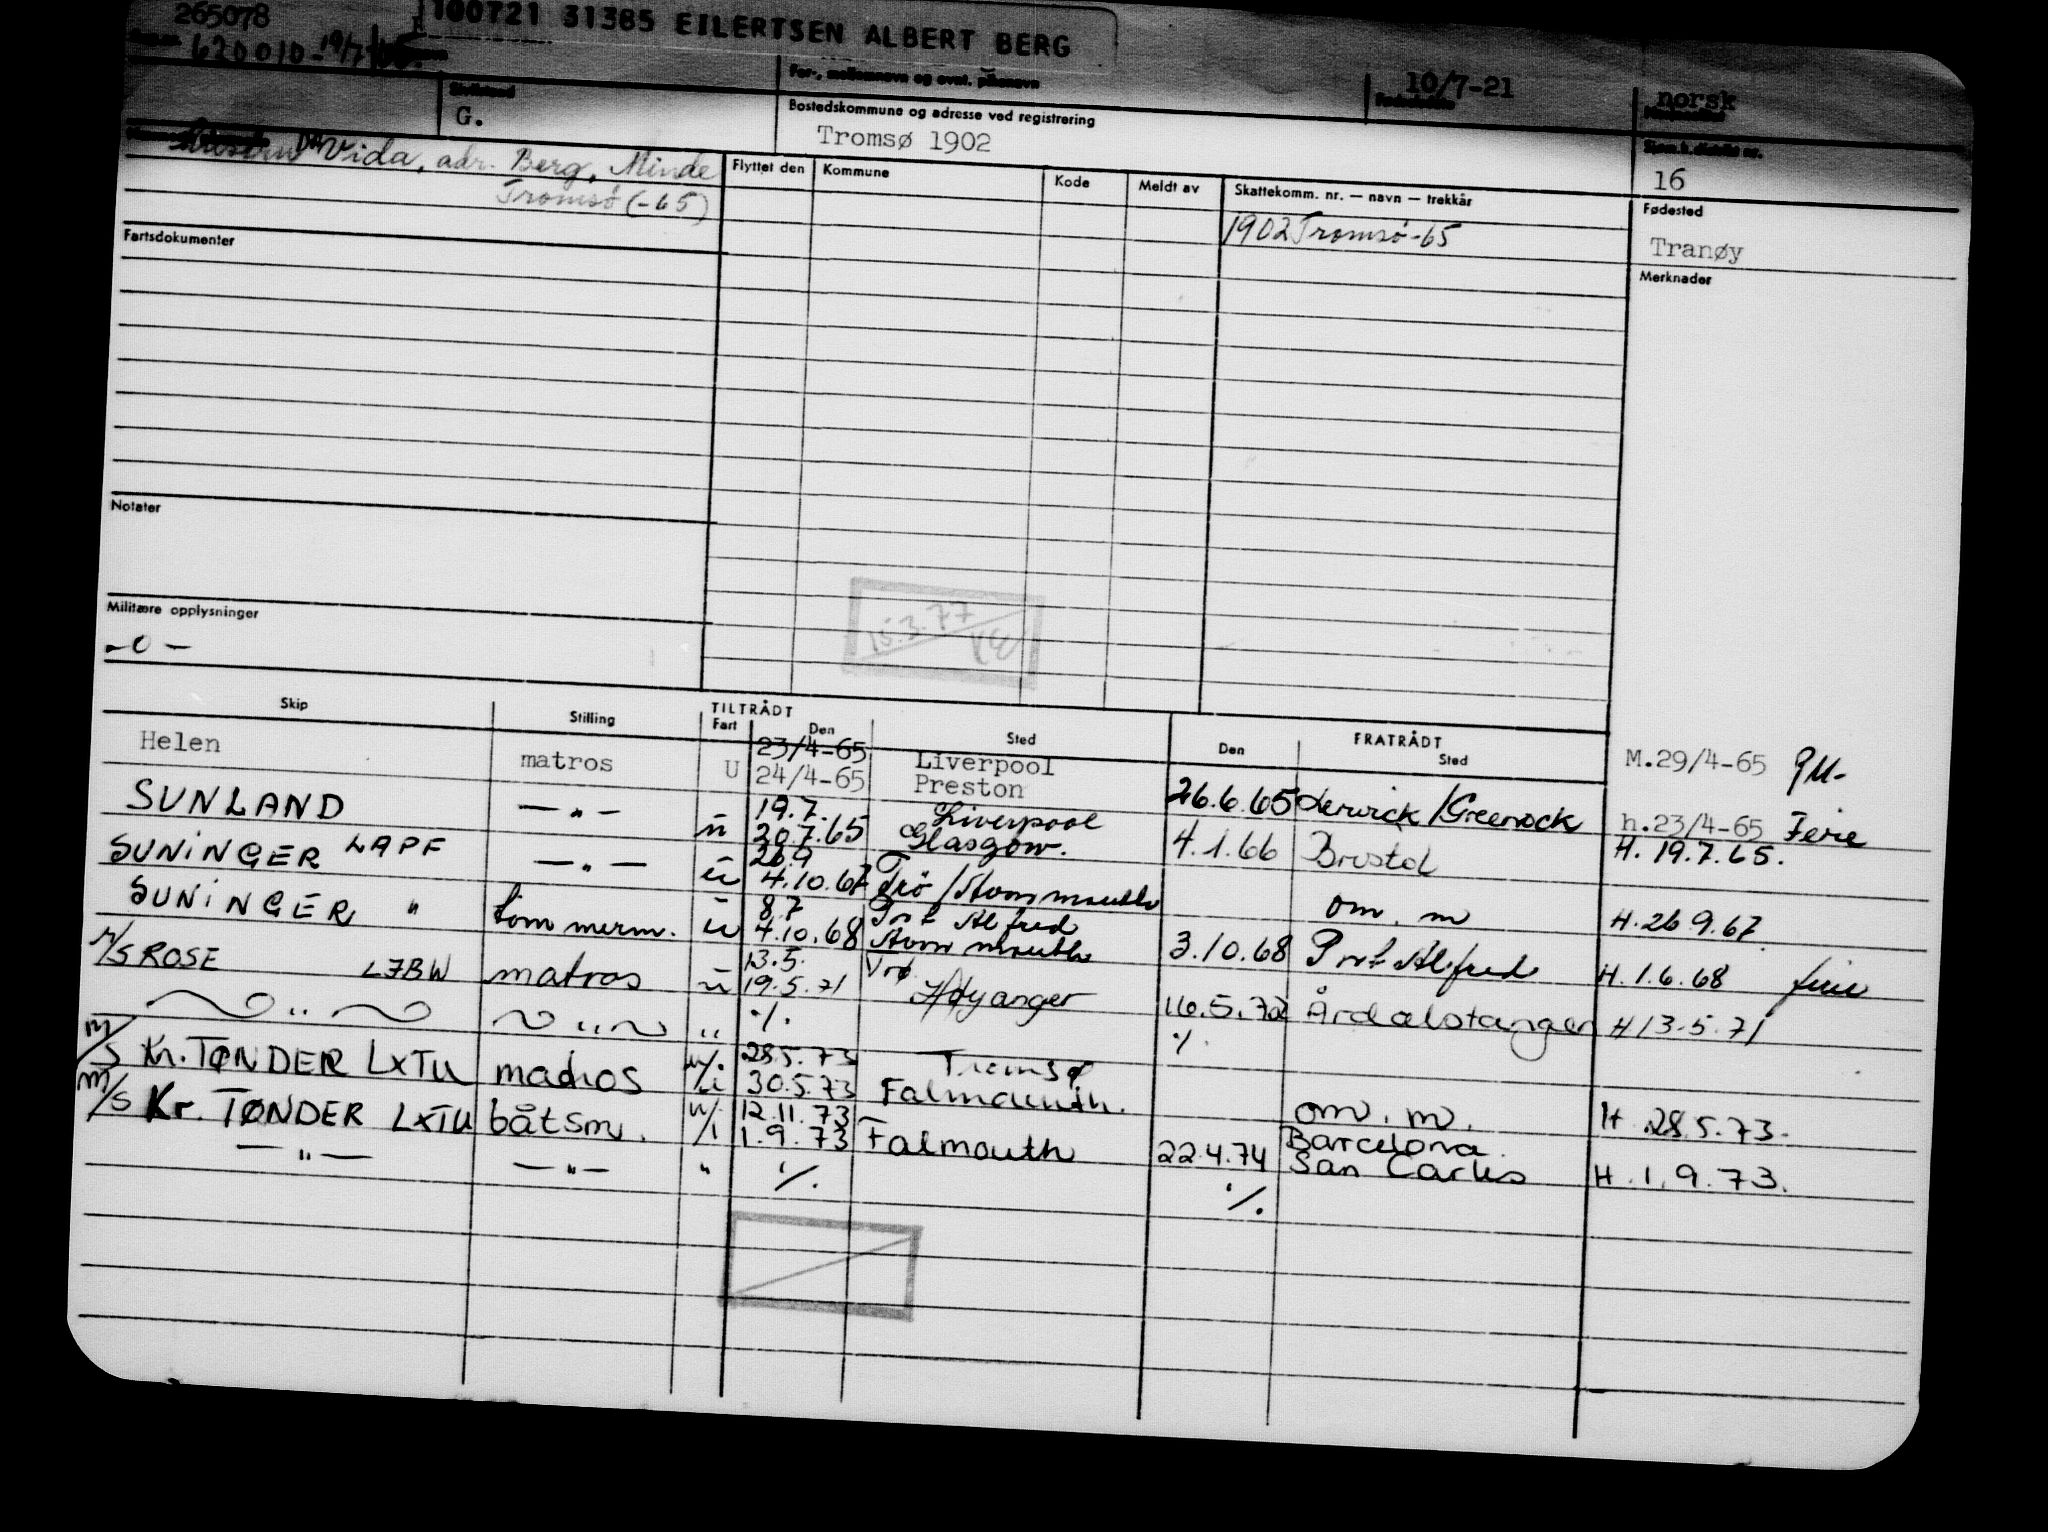 265078
100721 31385 EILERTSEN ALBERT BERG
620010-19/7
For-, mellomnavn og evnt. pikenavn
10/7-21
norsk
G.
Bostedskommune og adresse ved registrering
Tromsø 1902
Sjøm.k.distrikt nr.
16
Vida, adr. Berg, Minde
Tromsø (-65)
Flyttet den Kommune Kode Meldt av Skattekomm. nr. — navn — trekkår
1902 Tromsø -65
Fødested
Tranøy
Fartsdokumenter
Merknader
Notater
15.3.77
Militære opplysninger
-o-
Skip Stilling TILTRÅDT Fart Den Sted FRATRÅDT Den Sted
Helen matros U 23/4-65 Liverpool
24/4-65 Preston 26.6.65 Lerwick/Greenock M.29/4-65
SUNLAND —„— u 19.7. Liverpool
20.7.65 Glasgow. 4.1.66 Bristol h.23/4-65 Ferie
H. 19.7.65.
SUNINGER LAPF —„— u 26.9
4.10.67 Trø/Avonmouth om. m H.26.9.67.
SUNINGER " tømmerm. u 8.7 Port Alfred
4.10.68 Avonmouth 3.10.68 Port Alfred H.1.6.68 ferie
M/S ROSE LJBW matros u 13.5.
19.5.71 Høyanger 16.5.72 Årdalstangen H13.5.71
„ „ „ ./. ./.
M/S Kr. TØNDER LXTU matros u/i 28.5.73 Tromsø
30.5.73 Falmouth. om. m. H.28.5.73.
M/S Kr. TØNDER LXTU båtsm. u/i 12.11.73
1.9.73 Falmouth 22.4.74 Barcelona.
San Carlos H.1.9.73.
—„— —„— " ./. ./.